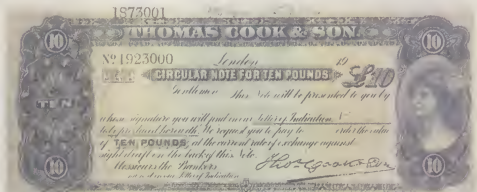 1873001
THOMAS COOK & SON.
10 10
Nº 1923000 London 19
CIRCULAR NOTE FOR TEN POUNDS £10
Gentlemen This Note will be presented to you by
TEN
whose signature you will find in our Letter of Indication Nº
to be produced herewith. We request you to pay to order the value
of TEN POUNDS at the current rate of exchange against
sight draft on the back of this Note
Messieurs the Bankers
named in our Letter of Indication
Thos Cook & Son
10 10